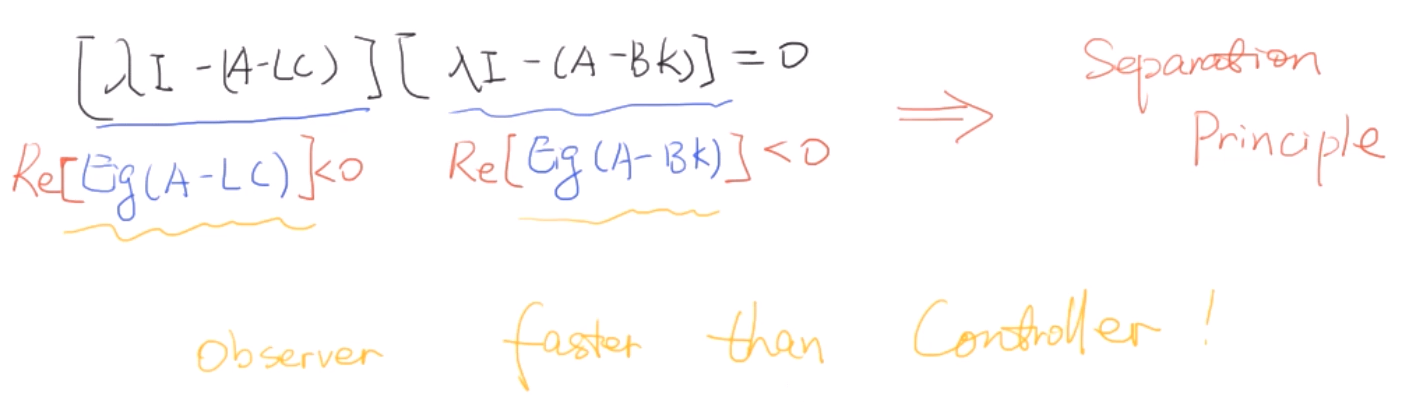 [λI-(A-LC)][λI-(A-BK)]=0 ⇒ Separation Principle
Re[Eig(A-LC)]<0 Re[Eig(A-BK)]<0
Observer faster than Controller!